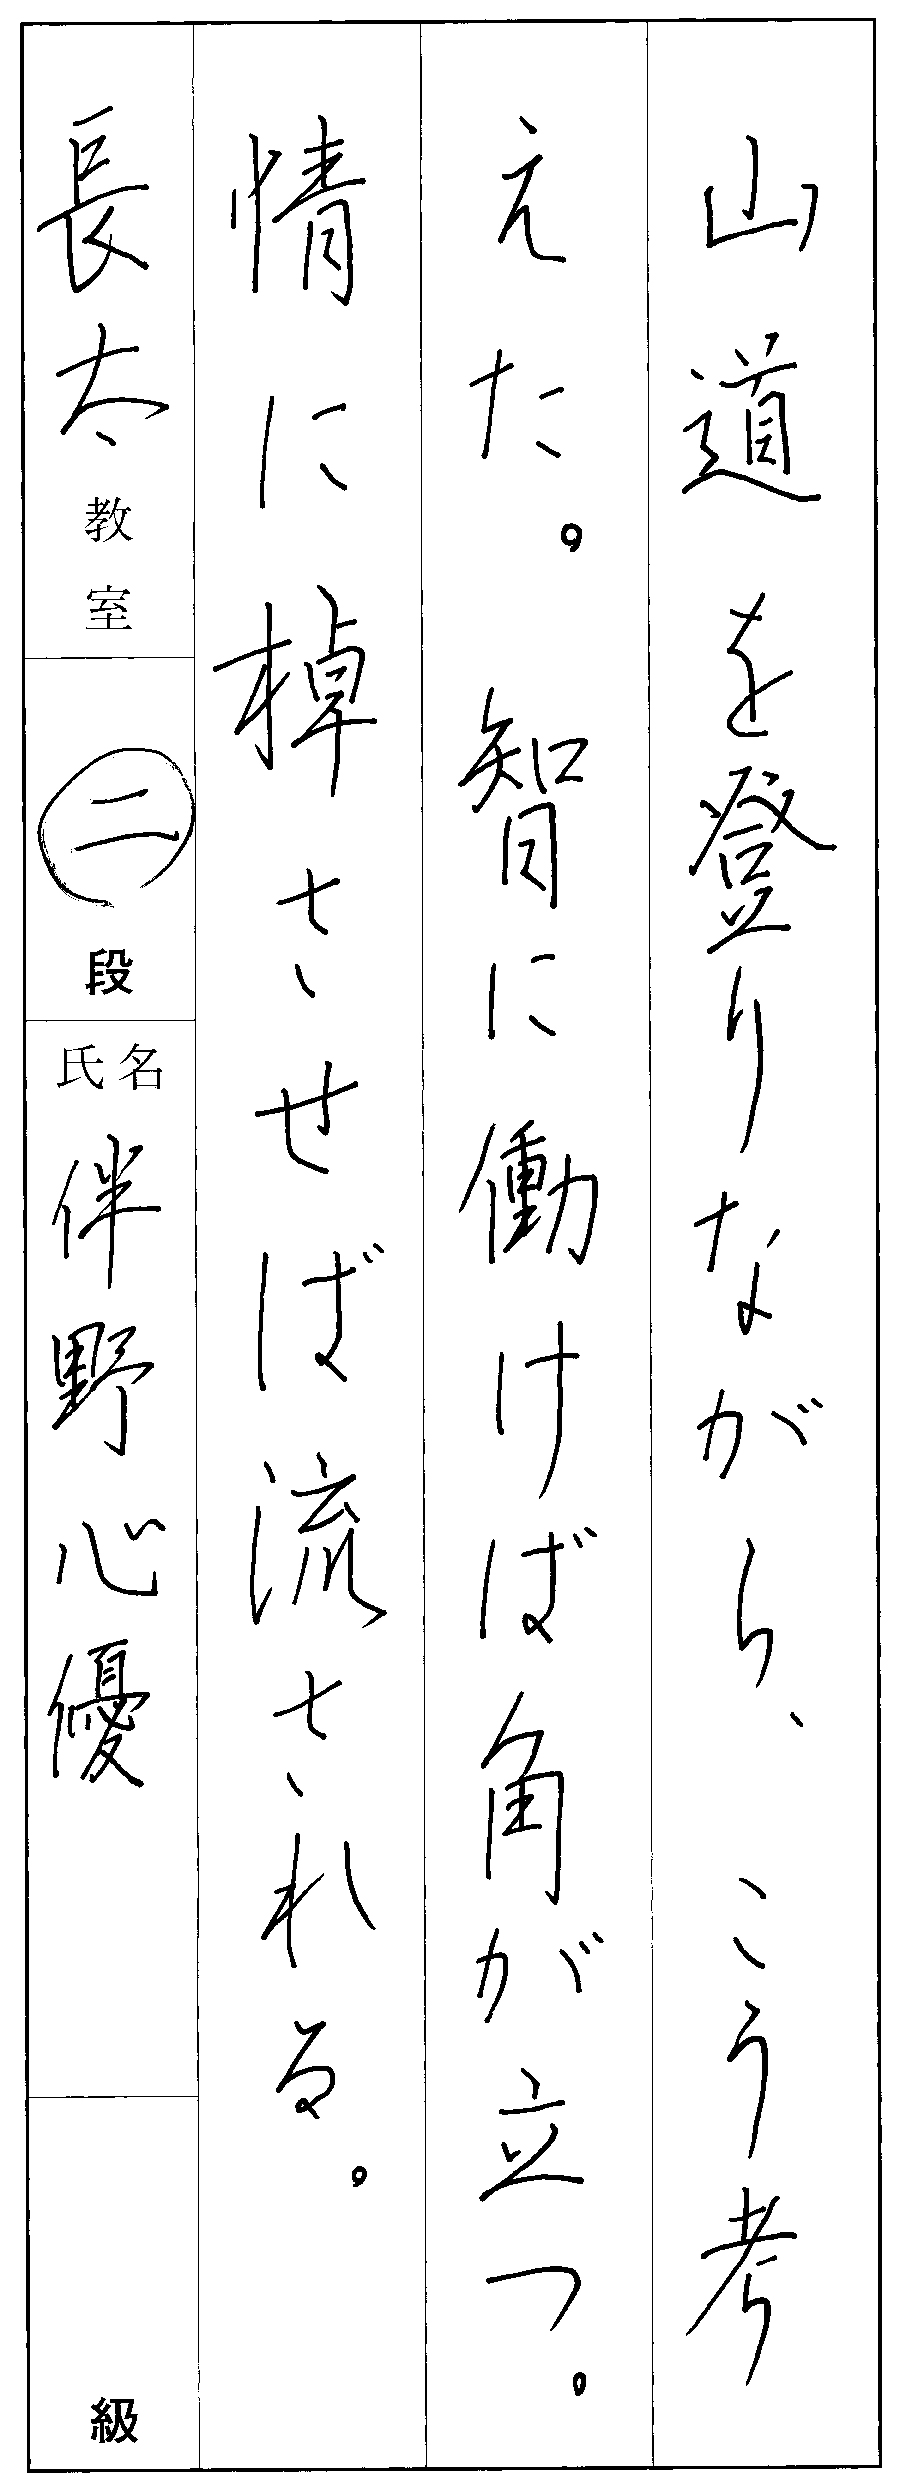 山道を登りながら、こう考
えた。智に働けば角が立つ。
情に棹させば流される。
長太教室
二段
氏名 伴野心優
級